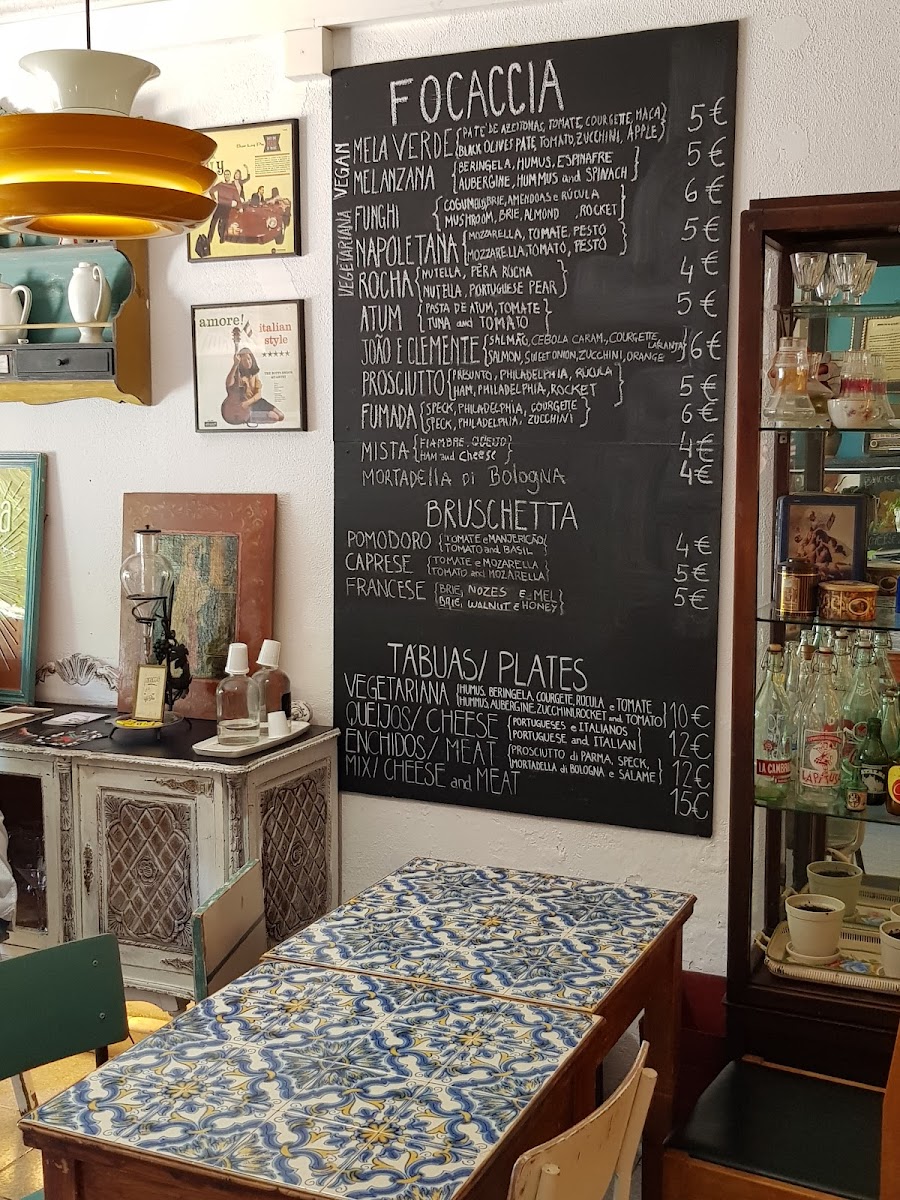 FOCACCIA
VEGAN
VEGETARIANA
MELA VERDE {PATE DE AZEITONAS, TOMATE, COURGETE, MAÇA} 5€
BLACK OLIVES PATE, TOMATO, ZUCCHINI, APPLE}
MELANZANA {BERINGELA, HUMUS, ESPINAFRE 5€
AUBERGINE, HUMMUS and SPINACH}
FUNGHI {COGUMELOS, BRIE, AMENDOAS e RÚCULA 6€
MUSHROOM, BRIE, ALMOND, ROCKET}
NAPOLETANA {MOZZARELLA, TOMATE, PESTO 5€
MOZZARELLA, TOMATO, PESTO}
ROCHA {NUTELLA, PÊRA ROCHA 4€
NUTELLA, PORTUGUESE PEAR}
ATUM {PASTA DE ATUM, TOMATE 5€
TUNA and TOMATO}
JOÃO E CLEMENTE {SALMÃO, CEBOLA CARAM., COURGETTE, LARANJA} 6€
SALMON, SWEET ONION, ZUCCHINI, ORANGE
PROSCIUTTO {PRESUNTO, PHILADELPHIA, RÚCULA 5€
HAM, PHILADELPHIA, ROCKET}
FUMADA {SPECK, PHILADELPHIA, COURGETE 6€
SPECK, PHILADELPHIA, ZUCCHINI}
MISTA {FIAMBRE, QUEIJO} 4€
HAM and CHEESE}
MORTADELLA DI BOLOGNA 4€
BRUSCHETTA
POMODORO {TOMATE e MANJERICÃO 4€
TOMATO and BASIL}
CAPRESE {TOMATE e MOZARELLA 5€
TOMATO and MOZARELLA}
FRANCESE {BRIE, NOZES E MEL 5€
BRIE, WALNUT e HONEY}
TÁBUAS/ PLATES
VEGETARIANA {HUMUS, BERINGELA, COURGETE, RÚCULA e TOMATE 10€
HUMMUS, AUBERGINE, ZUCCHINI, ROCKET and TOMATO}
QUEIJOS/ CHEESE {PORTUGUESES e ITALIANOS 12€
PORTUGUESE and ITALIAN}
ENCHIDOS/ MEAT {PROSCIUTTO DI PARMA, SPECK, 12€
MORTADELLA DI BOLOGNA e SALAME}
MIX/ CHEESE and MEAT 15€
amore!
italian
style
LA CAMBRA